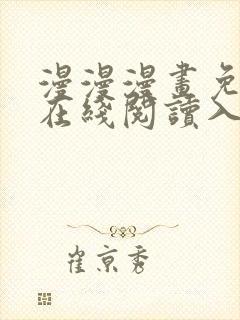 漫漫漫畫免
在綫閱讀入
崔京秀